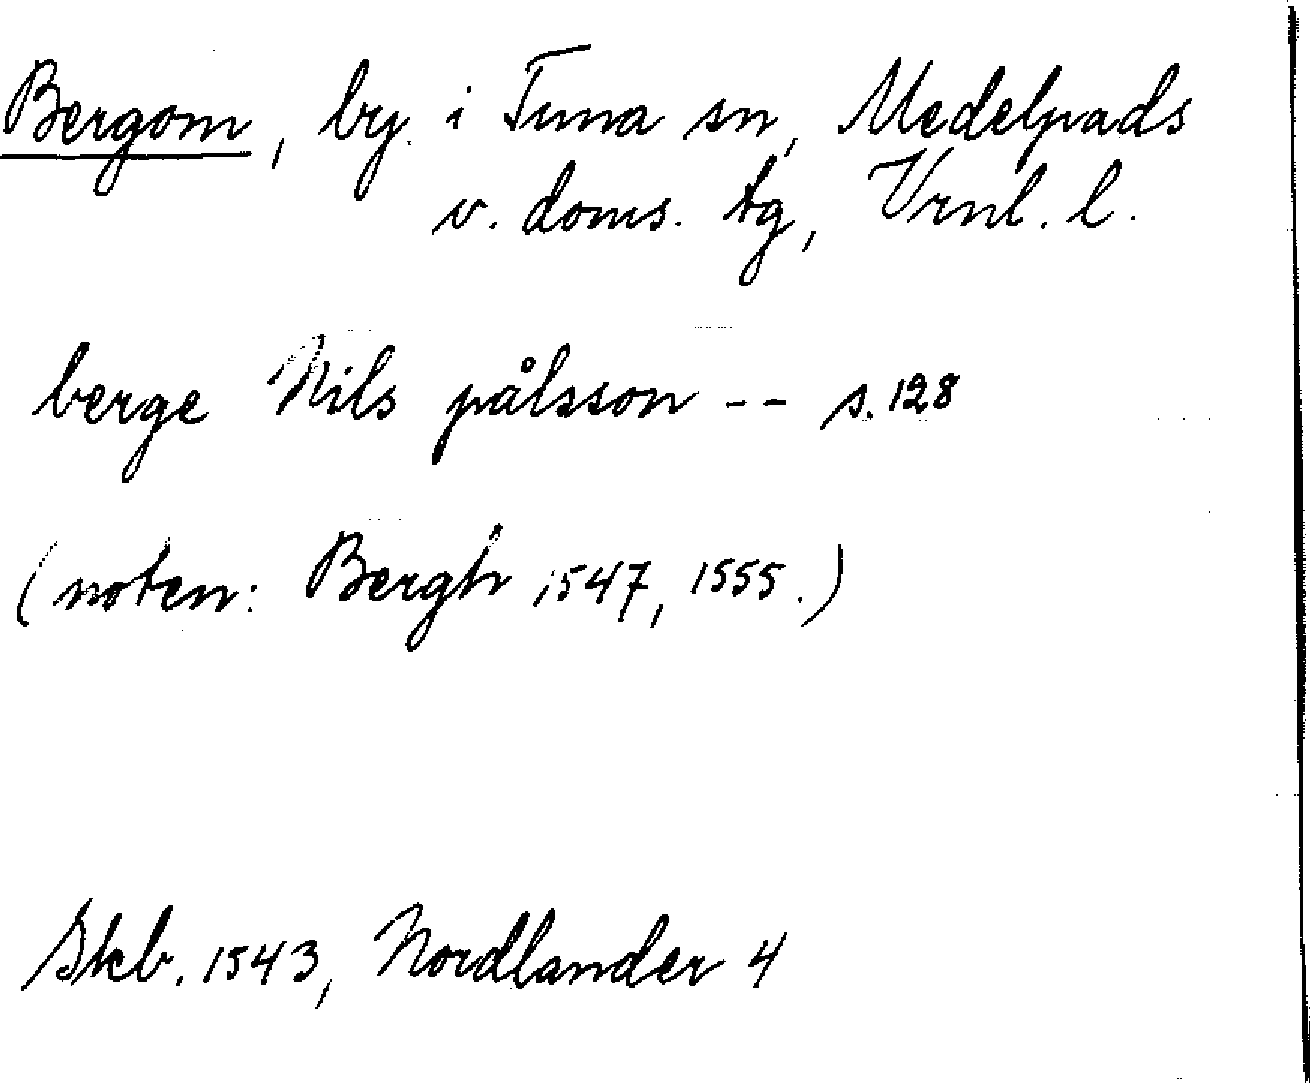 Bergom, by i Tuna sn, Medelpads
v. doms. tg, Vrnl. l.
berge Nils pålsson -- s. 128
(noten: Bergh 1547, 1555.)
Skb. 1543, Nordlander 4